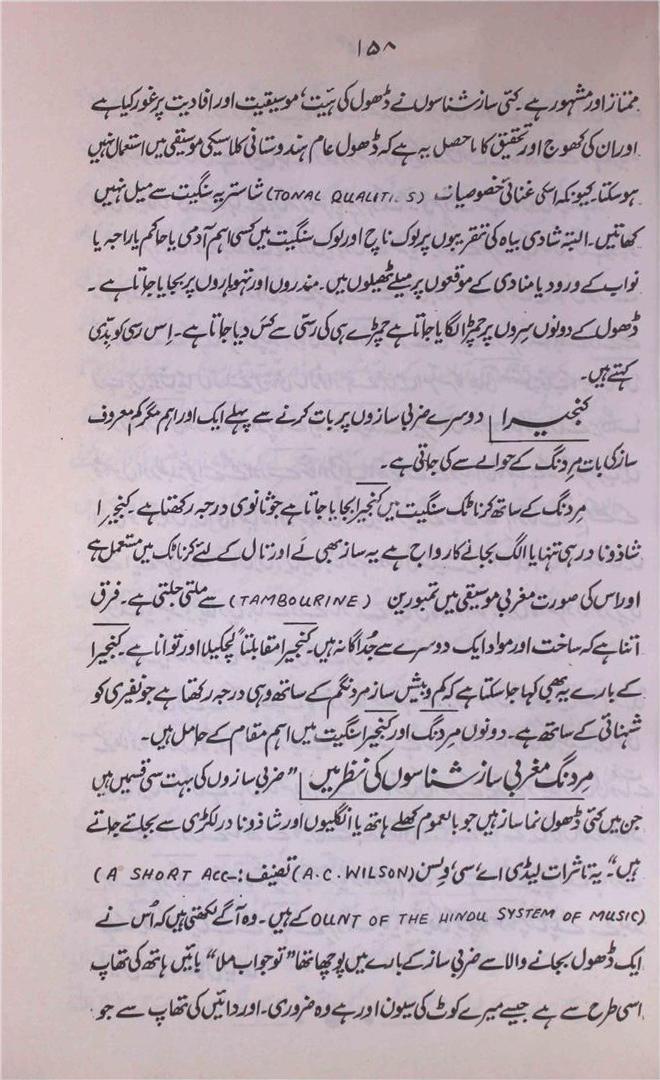 ۱۵۸
ممتاز اور مشہور ہے۔ کئی ساز شناسوں نے ڈھول کی ہیٔت، موسیقیت اور افادیت پر غور کیا ہے
اور ان کی کھوج اور تحقیق کا ماحصل یہ ہے کہ ڈھول عام ہندوستانی کلاسیکی موسیقی میں استعمال نہیں
ہو سکتا۔ کیونکہ اسکی غنائی خصوصیات (TONAL QUALITI S) شاستریہ سنگیت سے میل نہیں
کھاتیں۔ البتہ شادی بیاہ کی تقریبوں پر لوک ناچ اور لوک سنگیت میں کسی اہم آدمی یا حاکم یا راجہ یا
نواب کے ورود یا منادی کے موقعوں پر میلے ٹھیلوں میں۔ مندروں اور تہواروں پر بجایا جاتا ہے۔
ڈھول کے دونوں سروں پر چمڑا لگایا جاتا ہے چمڑے ہی کی رسّی سے کس دیا جاتا ہے۔ اِس رسی کو بدّی
کہتے ہیں۔
کنجیرا دوسرے ضربی سازوں پر بات کرنے سے پہلے ایک اور اہم مگر کم معروف
ساز کی بات مِردنگ کے حوالے سے کی جاتی ہے۔
مِردنگ کے ساتھ کرناٹک سنگیت میں کنجیرا بجایا جاتا ہے جو ثانوی درجہ رکھتا ہے۔ کنجیرا
شاذ و نادر ہی تنہا یا الگ بجانے کا رواج ہے یہ ساز بھی لَے اور تال کے لئے کرناٹک میں مستعمل ہے
اور اس کی صورت مغربی موسیقی میں تمبورین (TAMBOURINE) سے ملتی جلتی ہے۔ فرق
اتنا ہے کہ ساخت اور مواد ایک دوسرے سے جُداگانہ ہیں۔ کنجیرا مقابلتاً لچکیلا اور توانا ہے۔ کنجیرا
کے بارے یہ بھی کہا جا سکتا ہے کہ کم و بیش ساز مردنگم کے ساتھ وہی درجہ رکھتا ہے جو نفیری کو
شہنائی کے ساتھ ہے۔ دونوں مردنگ اور کنجیرا سنگیت میں اہم مقام کے حامل ہیں۔
مردنگ مغربی ساز شناسوں کی نظر میں "ضربی سازوں کی بہت سی قسمیں ہیں
جن میں کئی ڈھول نما ساز ہیں جو بالعموم کھلے ہاتھ یا انگلیوں اور شاذ و نادر لکڑی سے بجائے جاتے
ہیں" یہ تاثرات لیڈی اے، سی، وِلسن (A.C. WILSON) تصنیف :- (A SHORT ACC-
OUNT OF THE HINDU SYSTEM OF MUSIC) کے ہیں۔ وہ آگے لکھتی ہیں کہ اُس نے
ایک ڈھول بجانے والا سے ضربی ساز کے بارے میں پوچھا تھا "تو جواب ملا" بائیں ہاتھ کی تھاپ
اسی طرح سے ہے جیسے میرے کوٹ کی سیون اور ہے وہ ضروری۔ اور دائیں کی تھاپ سے جو